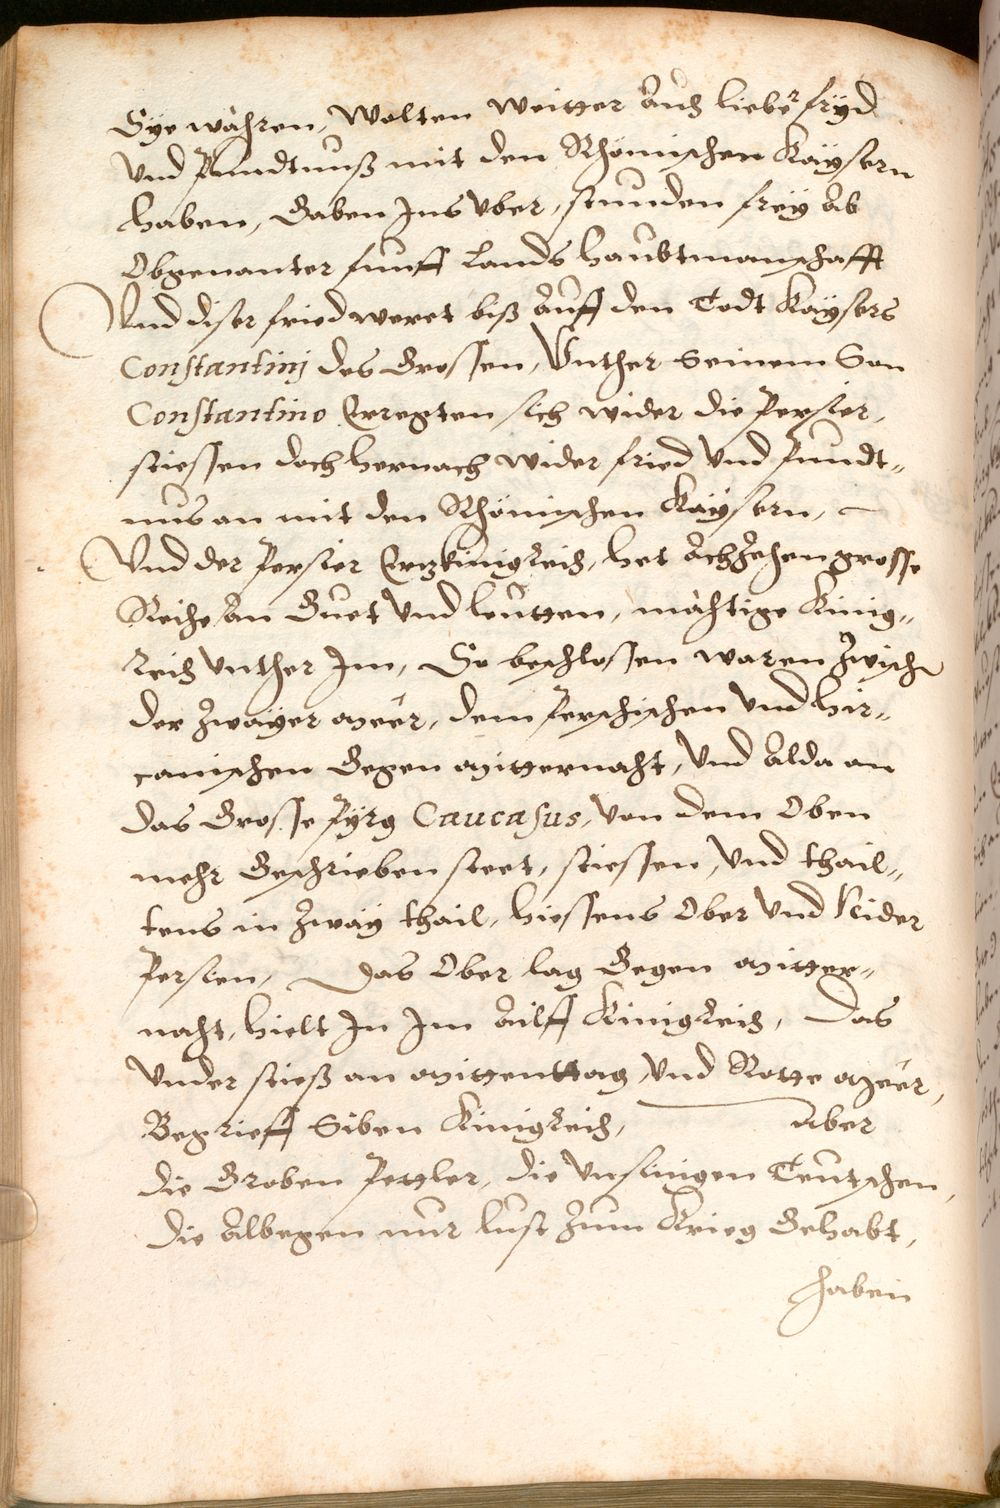 Sye wahren, Wolten weitter Auch lieber fryd
Vnd Pundtnuß mit den Rhömischen Kaÿsern
haben, Gaben Ins vber, stunden freÿ Ab
Obgenanter funff Lands haubtmanschafft
Vnd diser fried weret biß Auff den Todt Kaÿsers
Constantinj des Grossen, Vnther Seinem Son
Constantino Erregten sich wider die Persier,
stiessen doch hernach wider fried Vnd Pundt„
nus an mit den Rhömischen Kaÿsern,
Vnd der Persier Ertzkünigkreich, het Achzehen grosse
Reiche an Guet Vnd leutten, mächtige Künig„
reich Vnther Im, So beschlossen waren Zwische
der Zwaÿer meer, dem Perschischen Vnd Hir„
canischen Gegen mitternacht, Vnd Alda an
das Grosse Pyrg Caucasus, von dem Oben
mehr Geschrieben steet, stiessen, Vnd thail„
tens in Zwaÿ thail, hiessens Ober Vnd Nider
Persien, Das Ober lag Gegen mitter„
nacht, hielt In Im Ailff Künigkreich, Das
Vnder stieß an mittenttag, Vnd Rotte meer,
Begrieff Siben Künigkreich, Aber
die Groben Pettler, die Vnsinigen Teutschen,
die Albegen nur lust Zum Krieg Gehabt,
haben